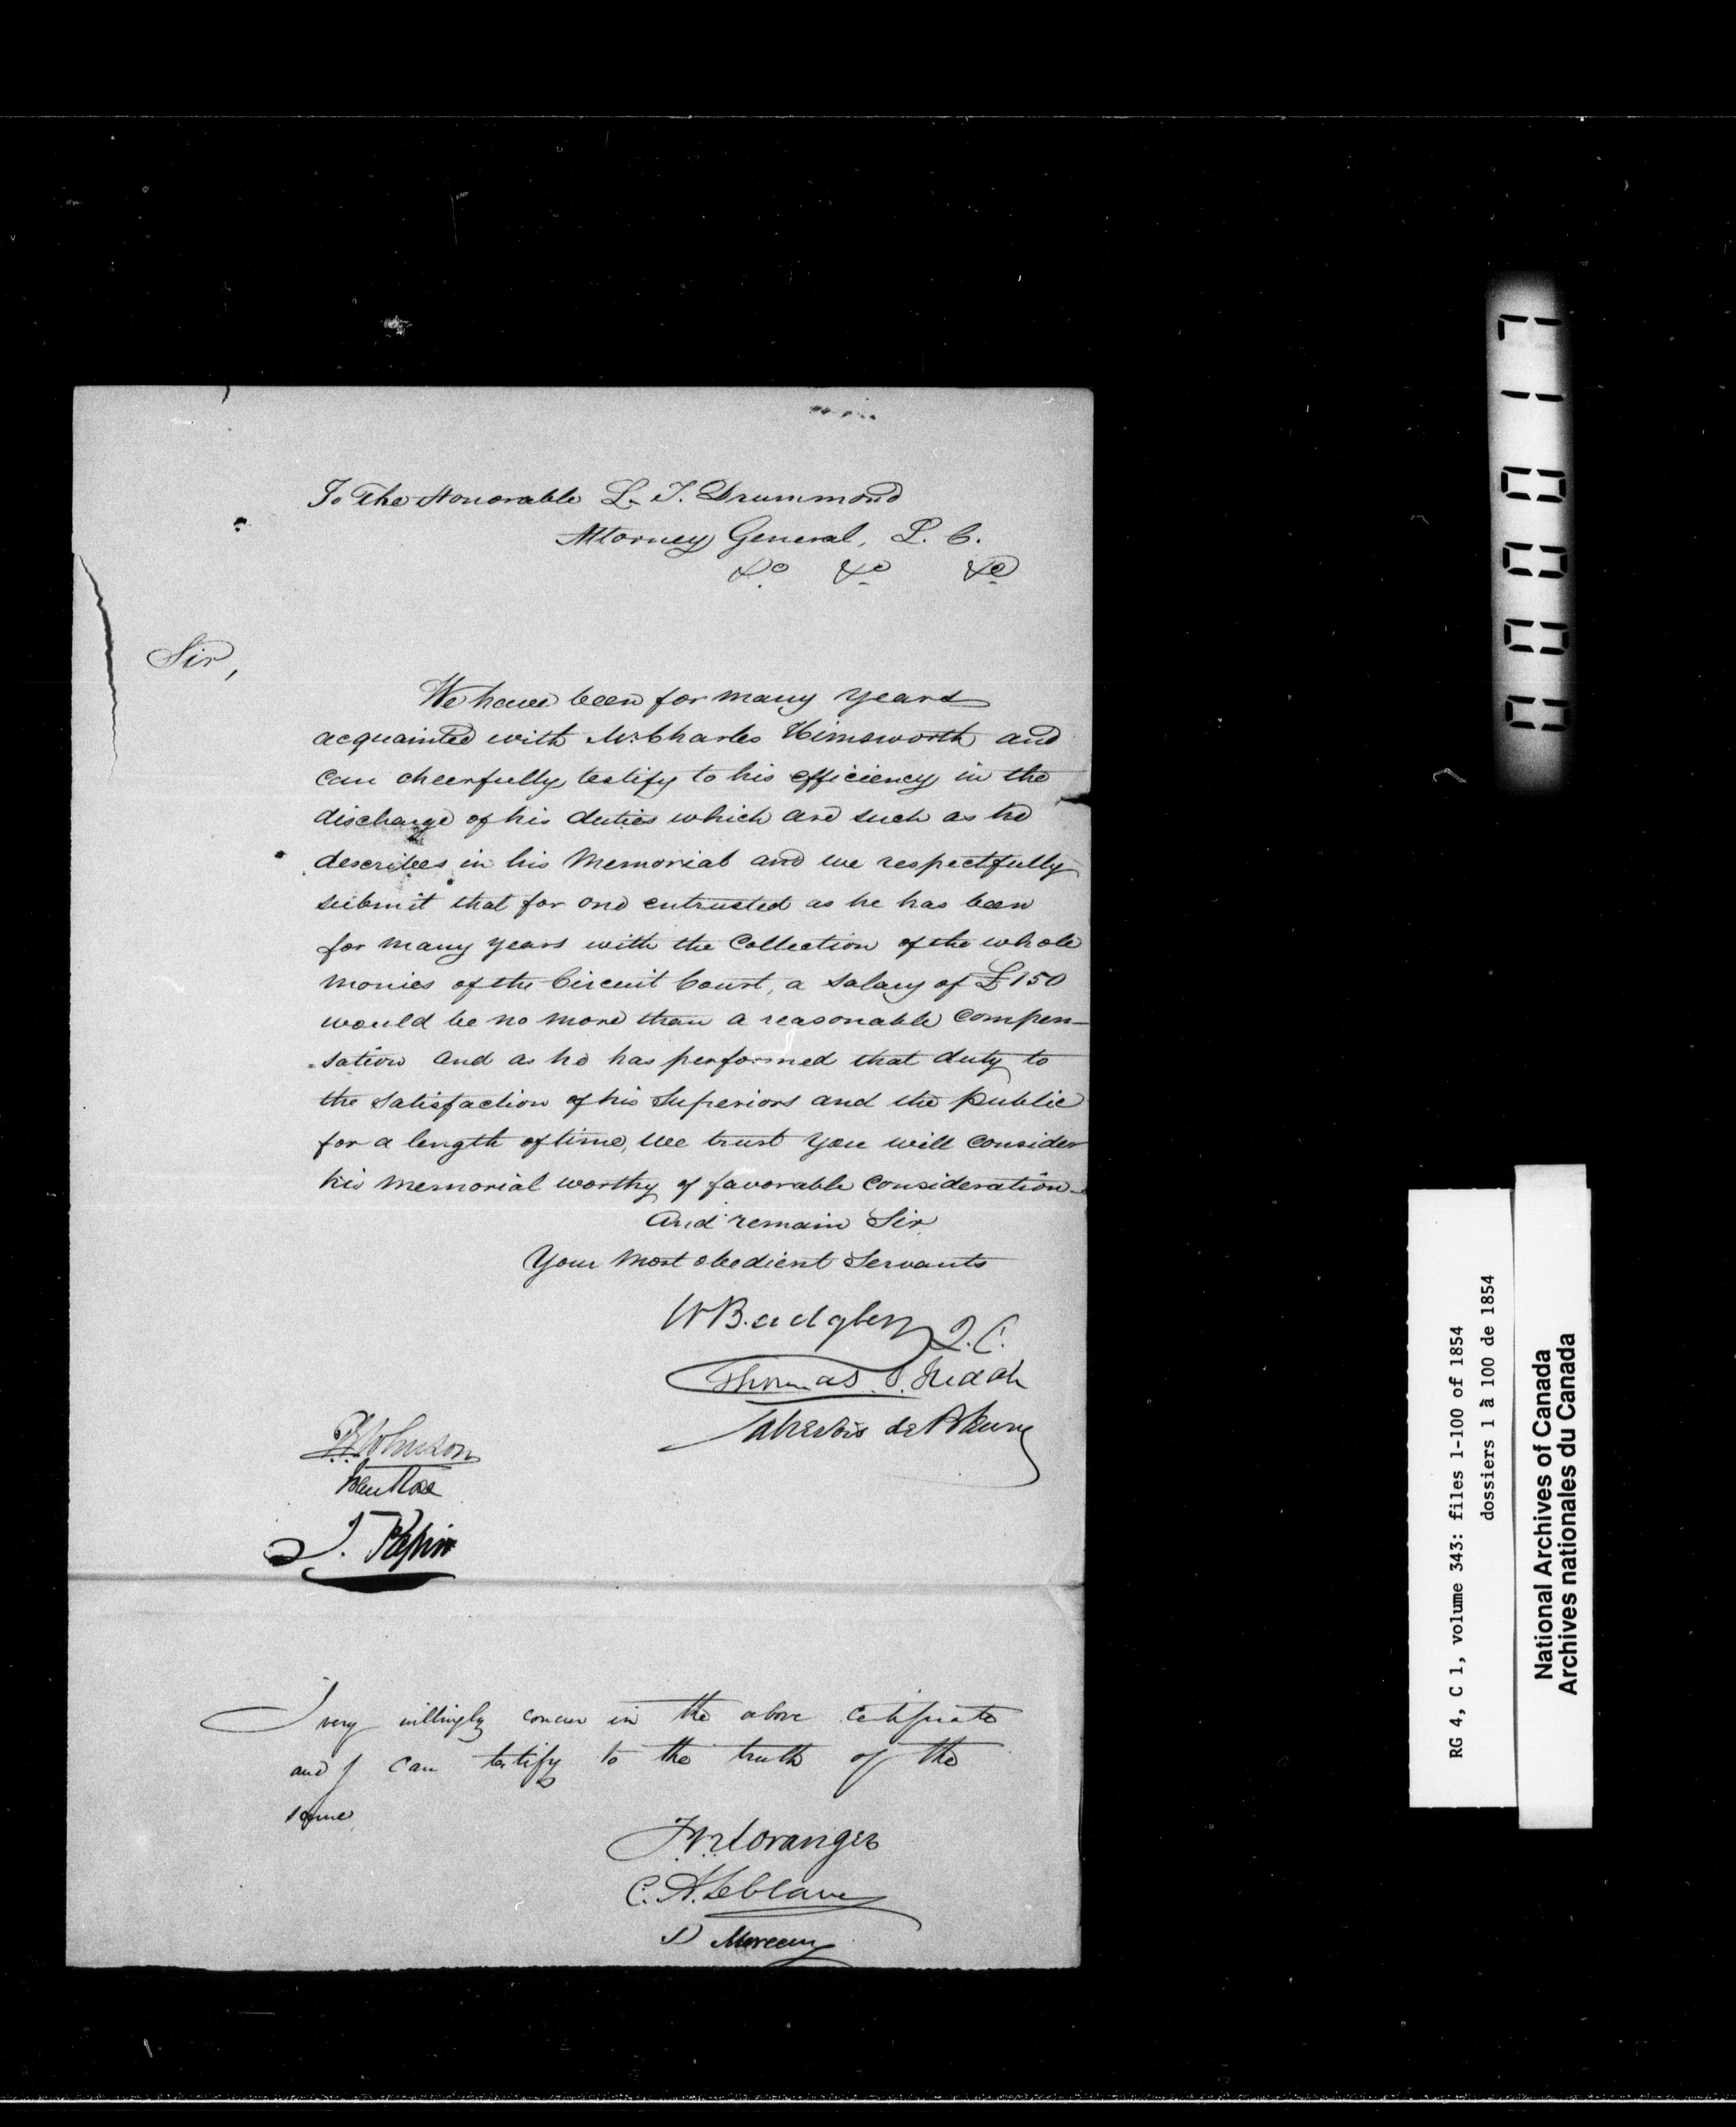 To The Honorable L. T. Drummond
Attorney General, L. C.
&c &c &c
Sir,
We have been for many years
acquainted with Mr. Charles Himsworth and
can cheerfully testify to his efficiency in the
discharge of his duties which are such as he
describes in his Memorial and we respectfully
submit that for one entrusted as he has been
for many years with the Collection of the whole
monies of the Circuit Court, a salary of £150
would be no more than a reasonable compen-
-sation and as he has performed that duty to
the satisfaction of his Superiors and the public
for a length of time, we trust you will consider
his memorial worthy of favorable consideration
And remain Sir
Your most obedient Servants
W Badgley Q.C.
Thomas S. Judah
de Bleury
Johnson
John Rose
J. Papin
I very willingly concur in the above certificate
and I can testify to the truth of the
same
Loranger
C. A. Leblanc
Moreau
000017
RG 4, C 1, volume 343: files 1-100 of 1854
dossiers 1 à 100 de 1854
National Archives of Canada
Archives nationales du Canada